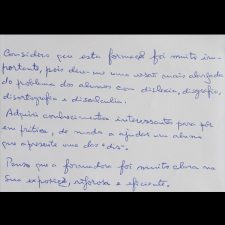 Considero que esta formação foi muito im-
portante, pois deu-me uma visão mais alargada
do problema dos alunos com dislexia, disgrafia,
disortografia e discalculia.
Adquiri conhecimentos interessantes para pôr
em prática, de modo a ajudar um aluno
que apresente uma das "dis".
Penso que a formadora foi muito clara na
sua exposição, rigorosa e eficiente.